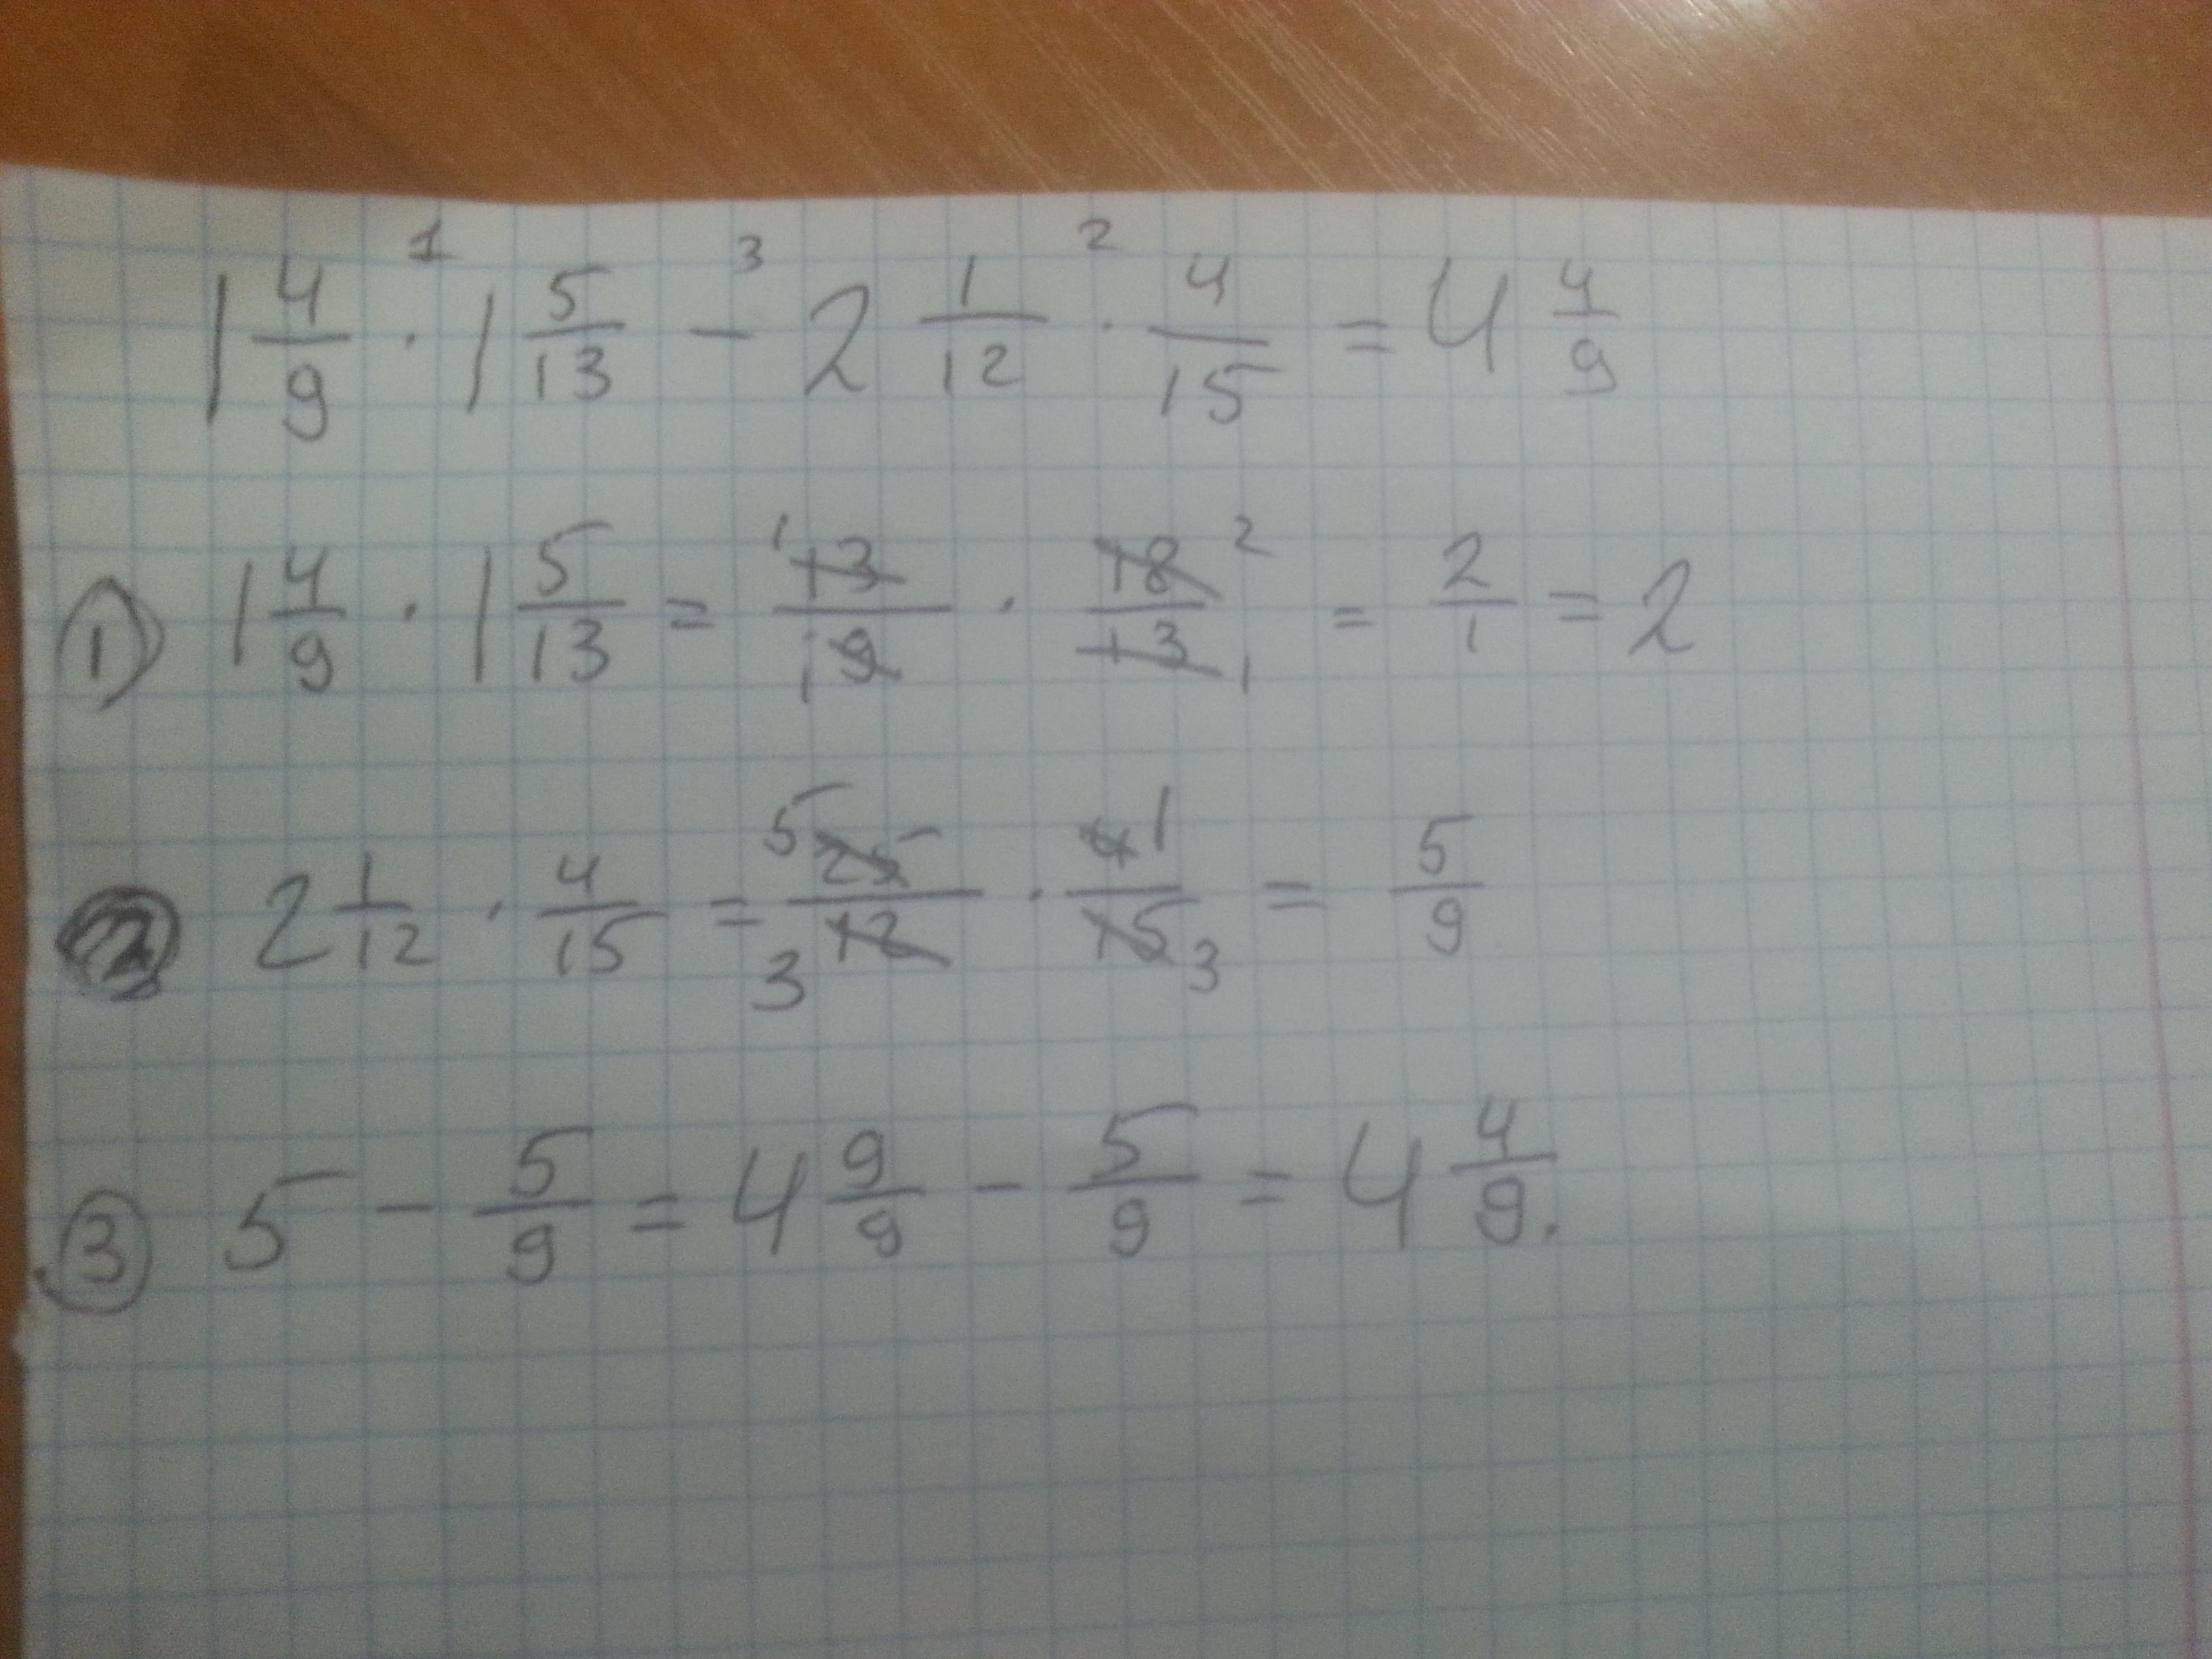 1 4/9 ·¹ 1 5/13 -³ 2 1/12 ·² 4/15 = 4 4/9
① 1 4/9 · 1 5/13 = ¹13/₁9 · 18²/13₁ = 2/1 = 2
② 2 1/12 · 4/15 = ⁵25/₃12 · 4¹/15₃ = 5/9
③ 5 - 5/9 = 4 9/9 - 5/9 = 4 4/9.